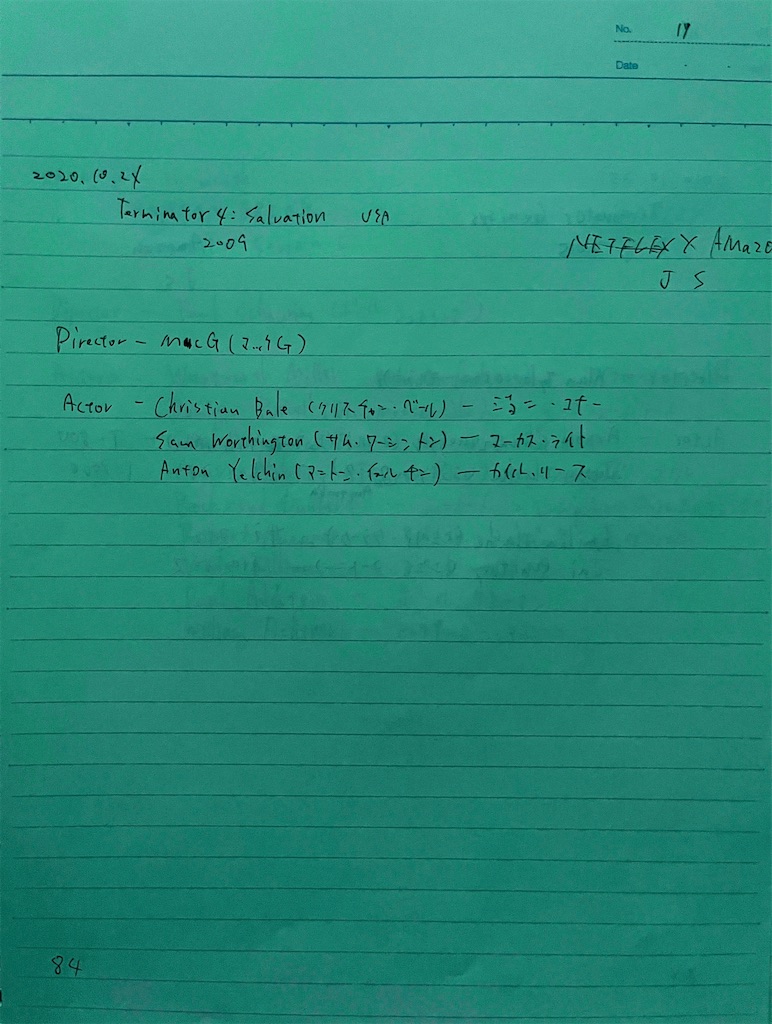 No. 19
Date
2020.10.24
Terminator 4: Salvation USA
2009
NETFLEX X Amazo
J S
Director - MacG (マックG)
Actor - Christian Bale (クリスチャン・ベール) - ジョン・コナー
Sam Worthington (サム・ワーシントン) - マーカス・ライト
Anton Yelchin (アントン・イェルチン) - カイル・リース
84